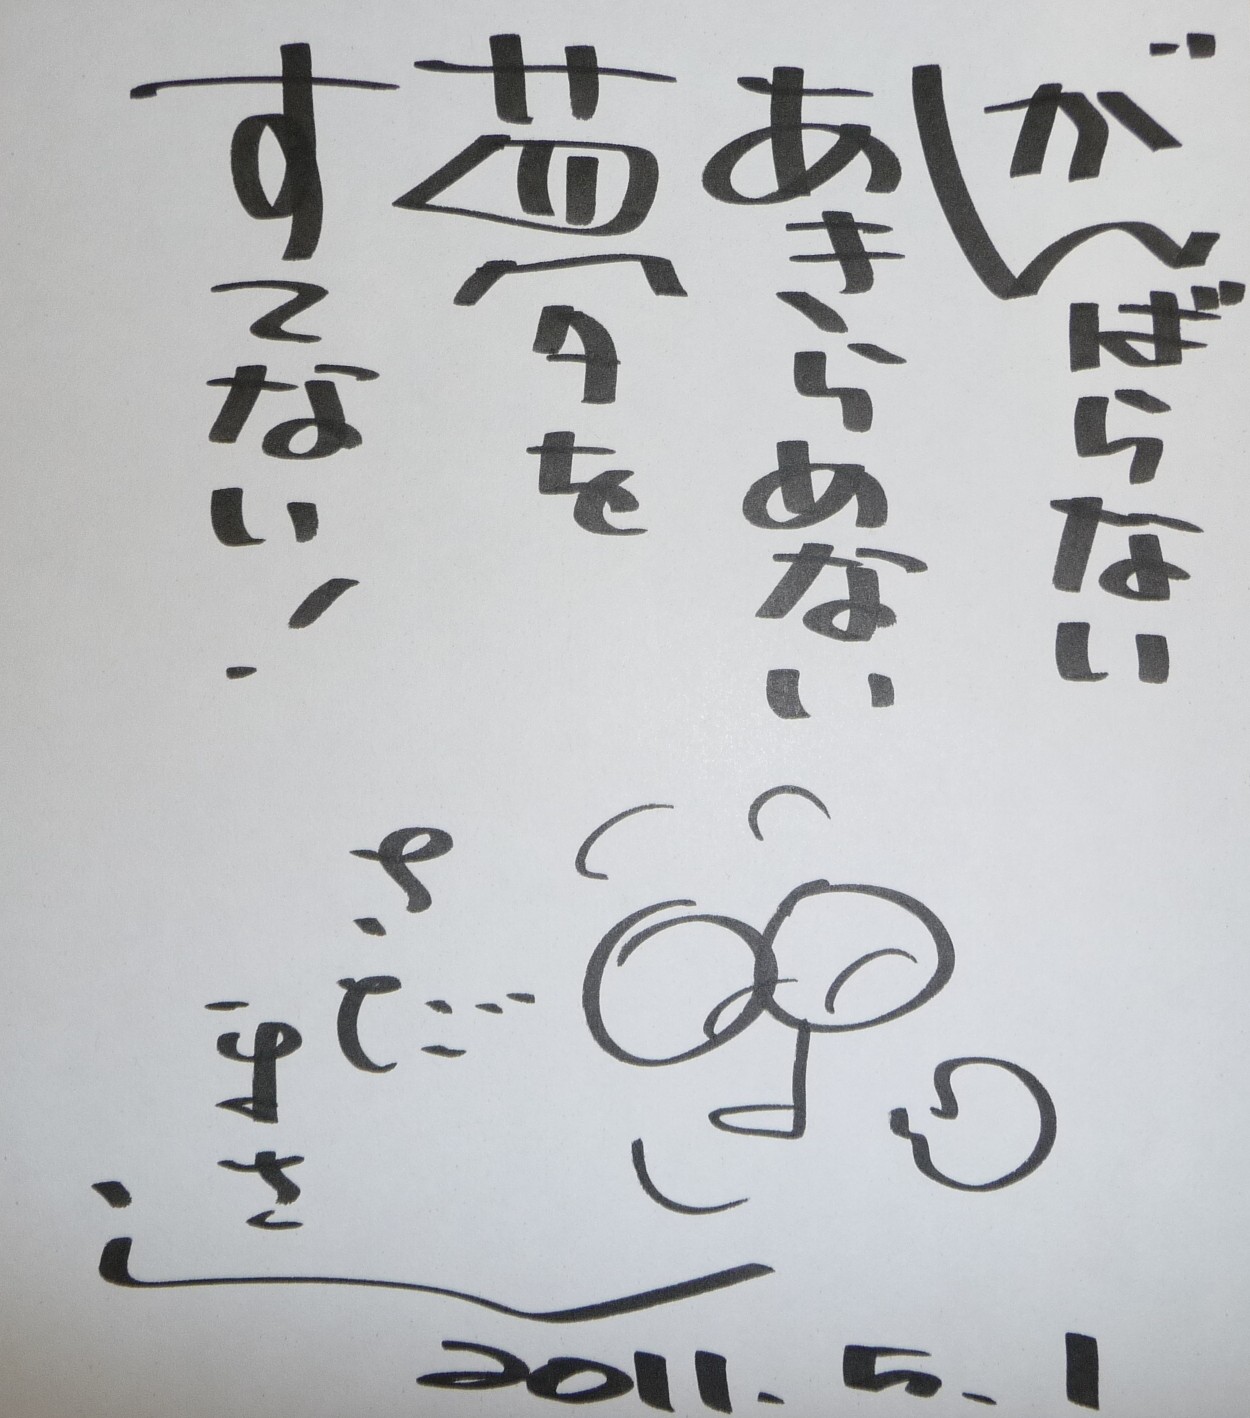 がんばらない
あきらめない
夢を
すてない!
2011.5.1